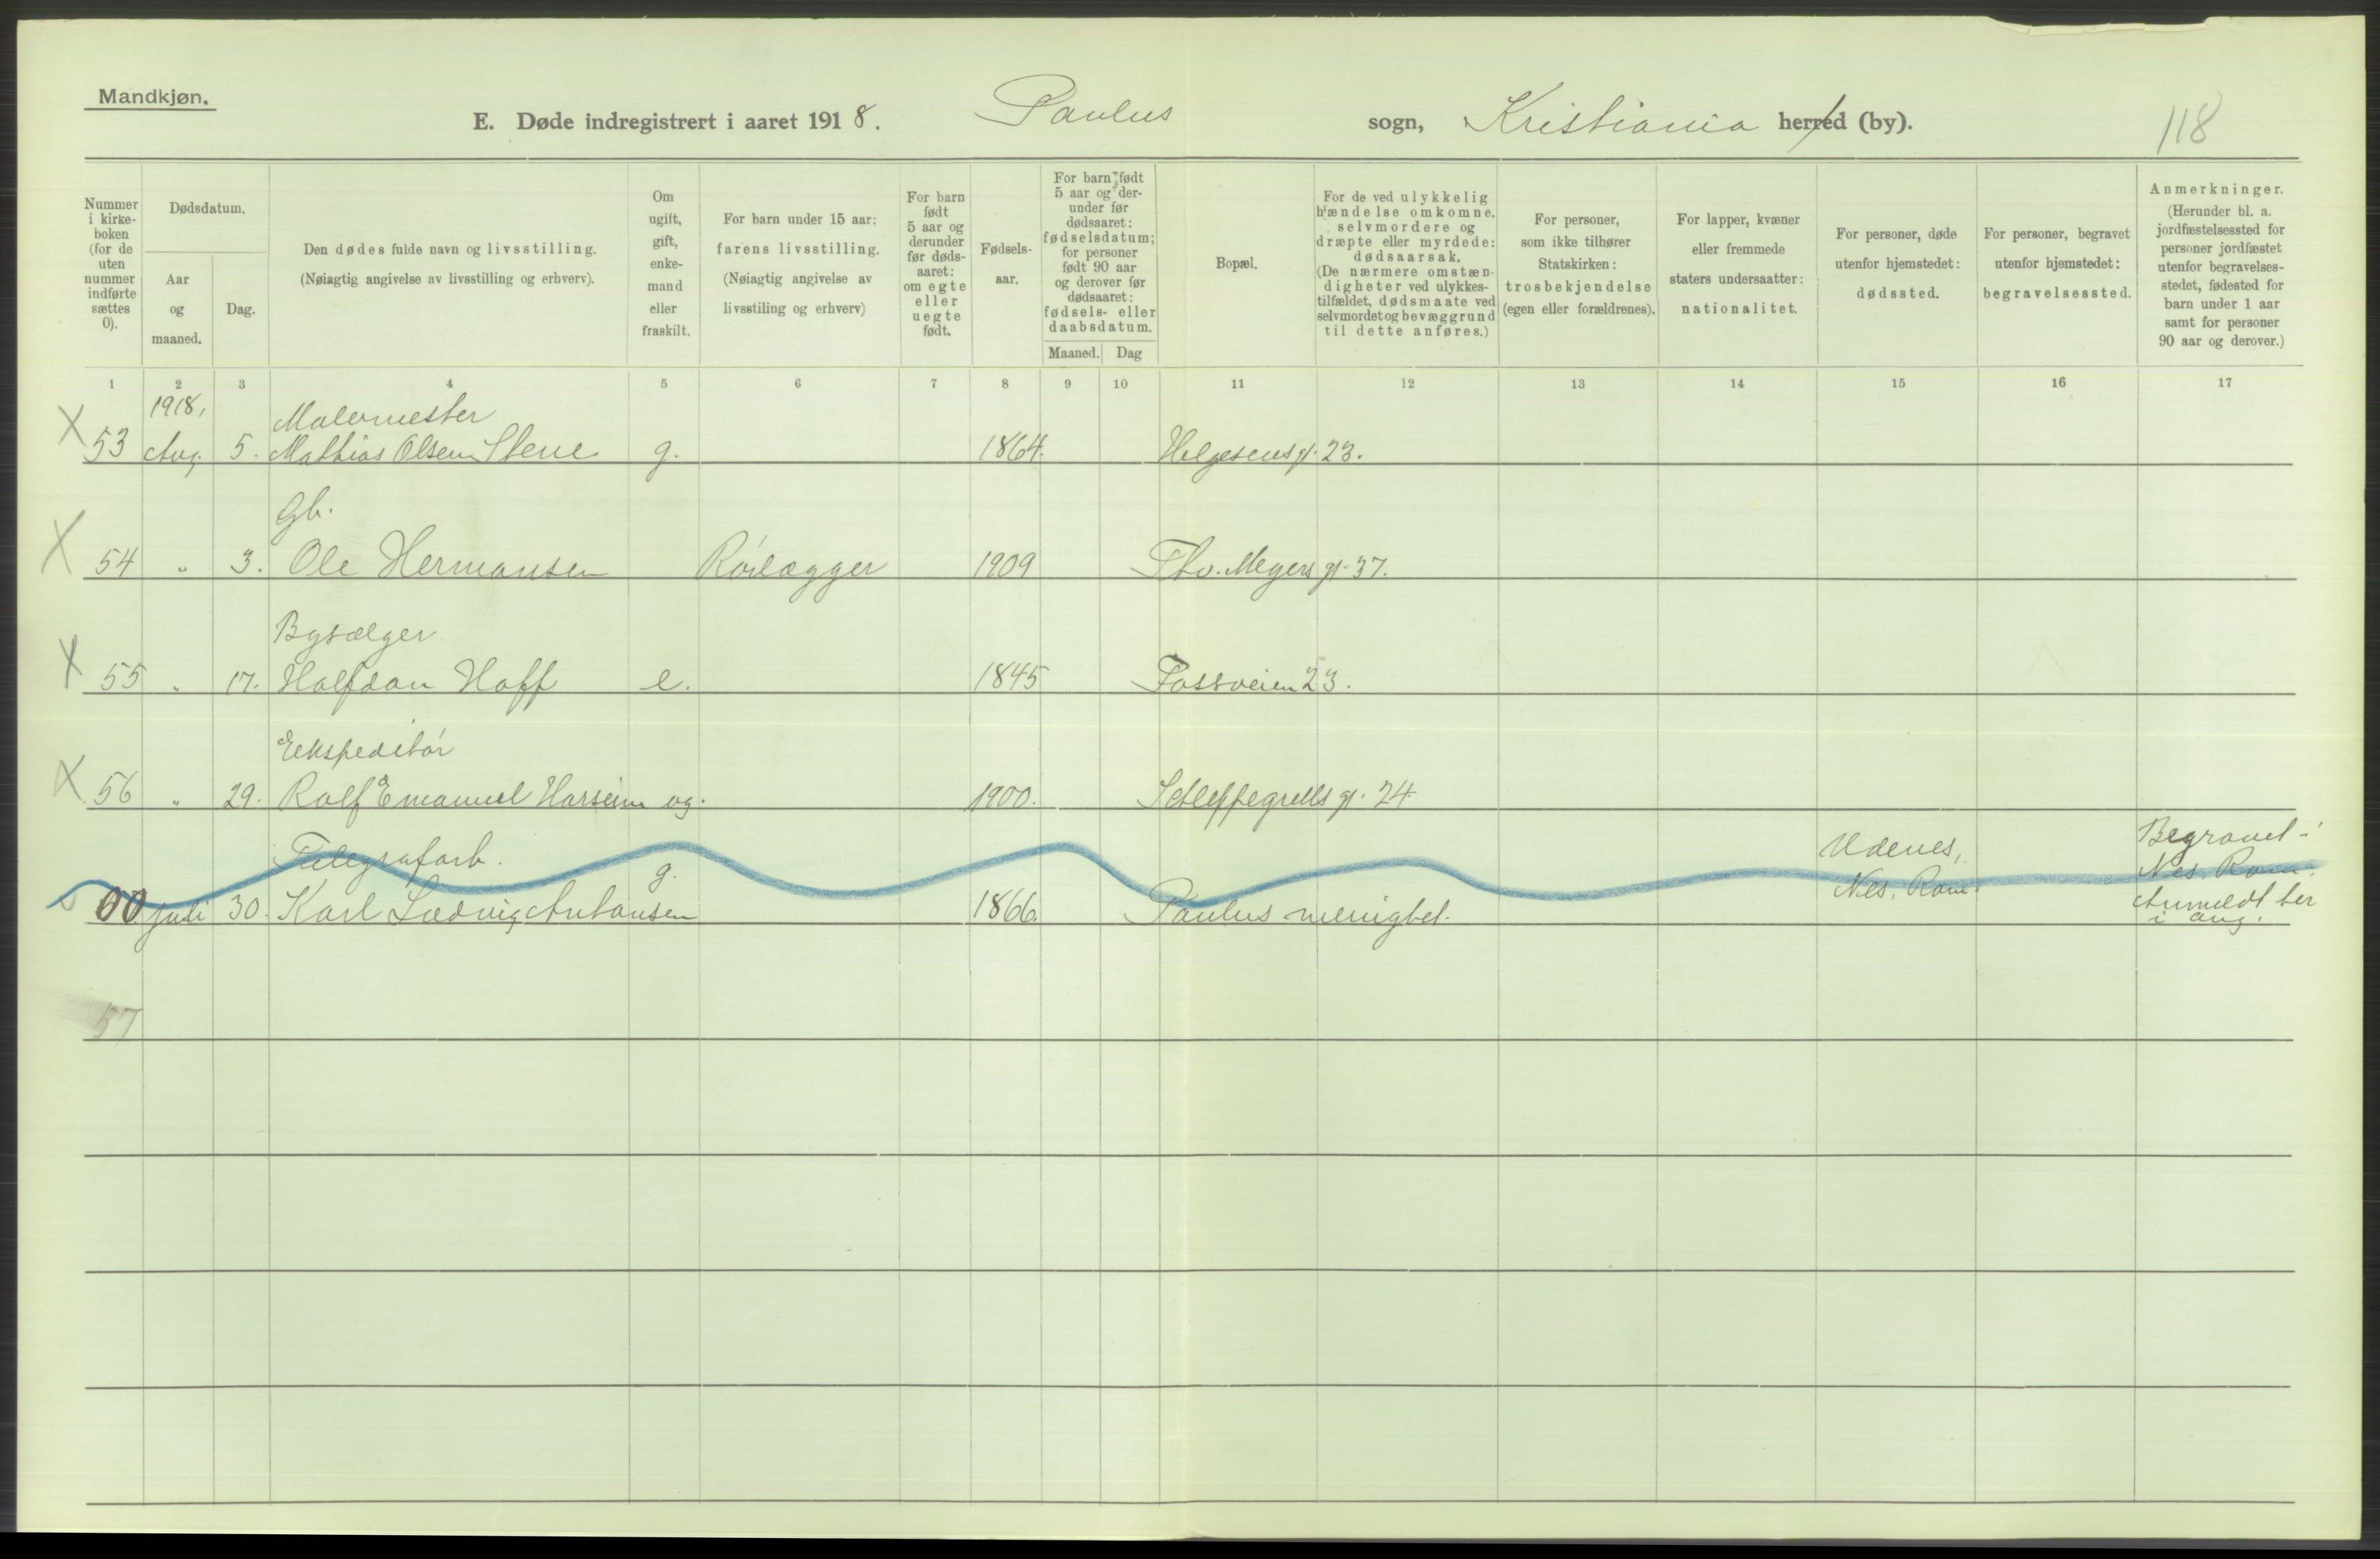 Mandkjøn.
E. Døde indregistrert i aaret 1918. Paulus sogn, Kristiania herred (by). 118
Nummer i kirke-boken (for de uten nummer indførte sættes 0).
Dødsdatum.
Aar og maaned.
Dag.
Den dødes fulde navn og livsstilling.
(Nøiagtig angivelse av livsstilling og erhverv).
Om ugift, gift, enke-mand eller fraskilt.
For barn under 15 aar:
farens livsstilling.
(Nøiagtig angivelse av livsstiling og erhverv)
For barn født 5 aar og derunder før døds-aaret: om egte eller uegte født.
Fødsels-aar.
For barn født 5 aar og der-under før dødsaaret: fødselsdatum; for personer født 90 aar og derover før dødsaaret: fødsels- eller daabsdatum.
Maaned. Dag
Bopæl.
For de ved ulykkelig hændelse omkomne, selvmordere og dræpte eller myrdede: dødsaarsak.
(De nærmere omstæn-digheter ved ulykkes-tilfældet, dødsmaate ved selvmordet og bevæggrund til dette anføres.)
For personer, som ikke tilhører Statskirken: trosbekjendelse (egen eller forældrenes).
For lapper, kvæner eller fremmede staters undersaatter: nationalitet.
For personer, døde utenfor hjemstedet: dødssted.
For personer, begravet utenfor hjemstedet: begravelsessted.
Anmerkninger.
(Herunder bl. a. jordfæstelsessted for personer jordfæstet utenfor begravelses-stedet, fødested for barn under 1 aar samt for personer 90 aar og derover.)
1 2 3 4 5 6 7 8 9 10 11 12 13 14 15 16 17
1918,
Malermester
X 53 Aug. 5. Mathias Olsen Stene g. 1864. Helgesens gt. 23.
Gb.
X 54 " 3. Ole Hermansen Rørlægger 1909 Thv. Meyers gt. 37.
Bysælger
X 55 " 17. Halfdan Hoff e. 1845 Fossveien 23.
Ekspeditør
X 56 " 29. Rolf Emanuel Harseim ug. 1900. Schleppegrells gt. 24
Telegrafarb. g. Udenes, Begravet i
Nes, Rom. Nes, Rom.
00 juli 30. Karl Ludvig Antonsen 1866. Paulus menighet. Anmeldt her
i aug.
57